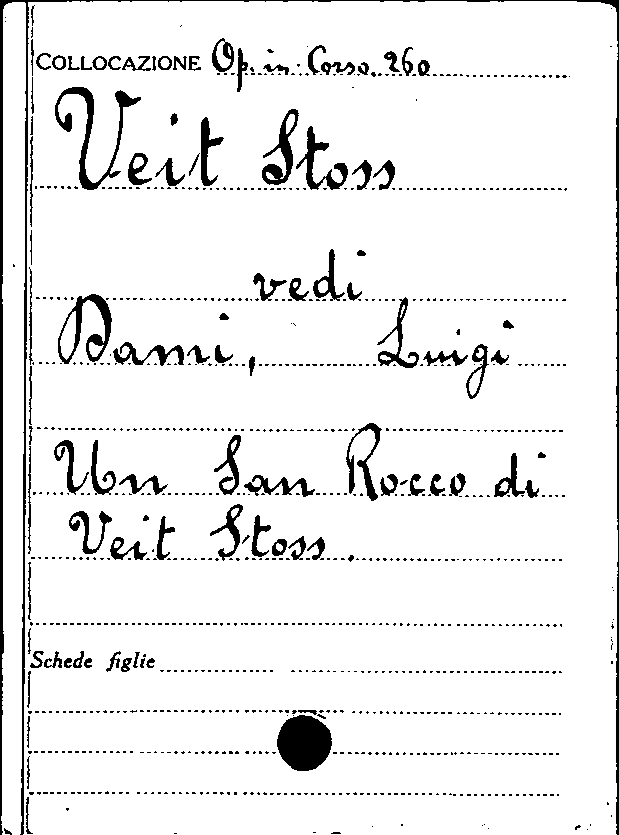 COLLOCAZIONE Op. in Corso. 260
Veit Stoss
vedi
Dami, Luigi
Un San Rocco di
Veit Stoss.
Schede figlie